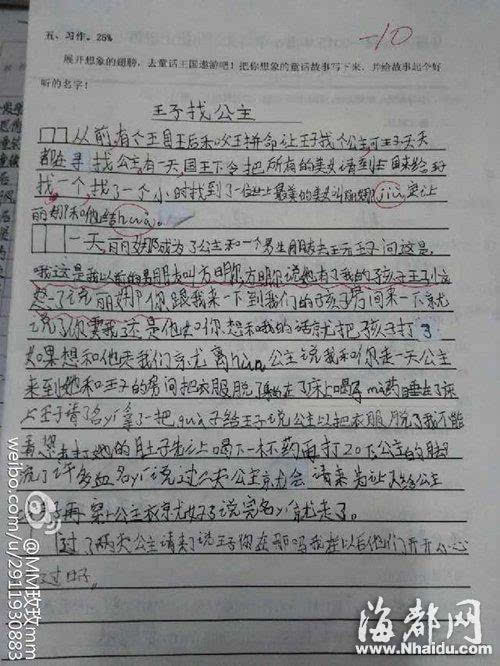 五、习作。25%
-10
展开想象的翅膀，去童话王国遨游吧！把你想象的童话故事写下来，并给故事起个好
听的名字！
王子找公主
从前，有个王国王后和对王拼命让王子找个公主可王子天天
都在寻找公主，有一天，国王下令把所有的美女请到出来给王子
找一个，找了一个小时找到了一位世上最美的美女叫丽娜，jiu要让
丽娜和他结hun。
一天丽娜成为了公主和一个男生朋友去玩王子问这是，
哦这是我以前的男朋友叫方明，方明说她有了我的孩子王子
一了说丽娜你跟我来一下到我们的孩子房间来一下就
说了你要我这是他如你想和我的话就把孩子打了
如果想和他走我们京尤离hun公主说我和你走一天公主
来到她和王子的房间把衣服脱了在床上喝了mi药睡在了床
上王子请名yi拿了一把gua子给王子说公主以把衣服脱了我不能
看去打她的肚子先让喝下一杯药再打20下公主的脚
流了许多血名yi说过二天公主京尤会请来先让人给公主
再穿上公主衣京尤好了说完名yi就走了。
过了两天公主请来了说王子你在那吗我在以后他们开开心心
过日子。
weibo.com/u/2911930883
海都网
www.Nhaidu.com